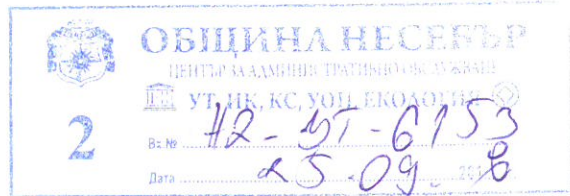 ОБЩИНА НЕСЕБЪР
ЦЕНТЪР ЗА АДМИНИСТРАТИВНО ОБСЛУЖВАНЕ
УТ, ИК, КС, УОП, ЕКОЛОГИЯ
2
Вх № Н2-УТ-6153
Дата 25.09. 2018